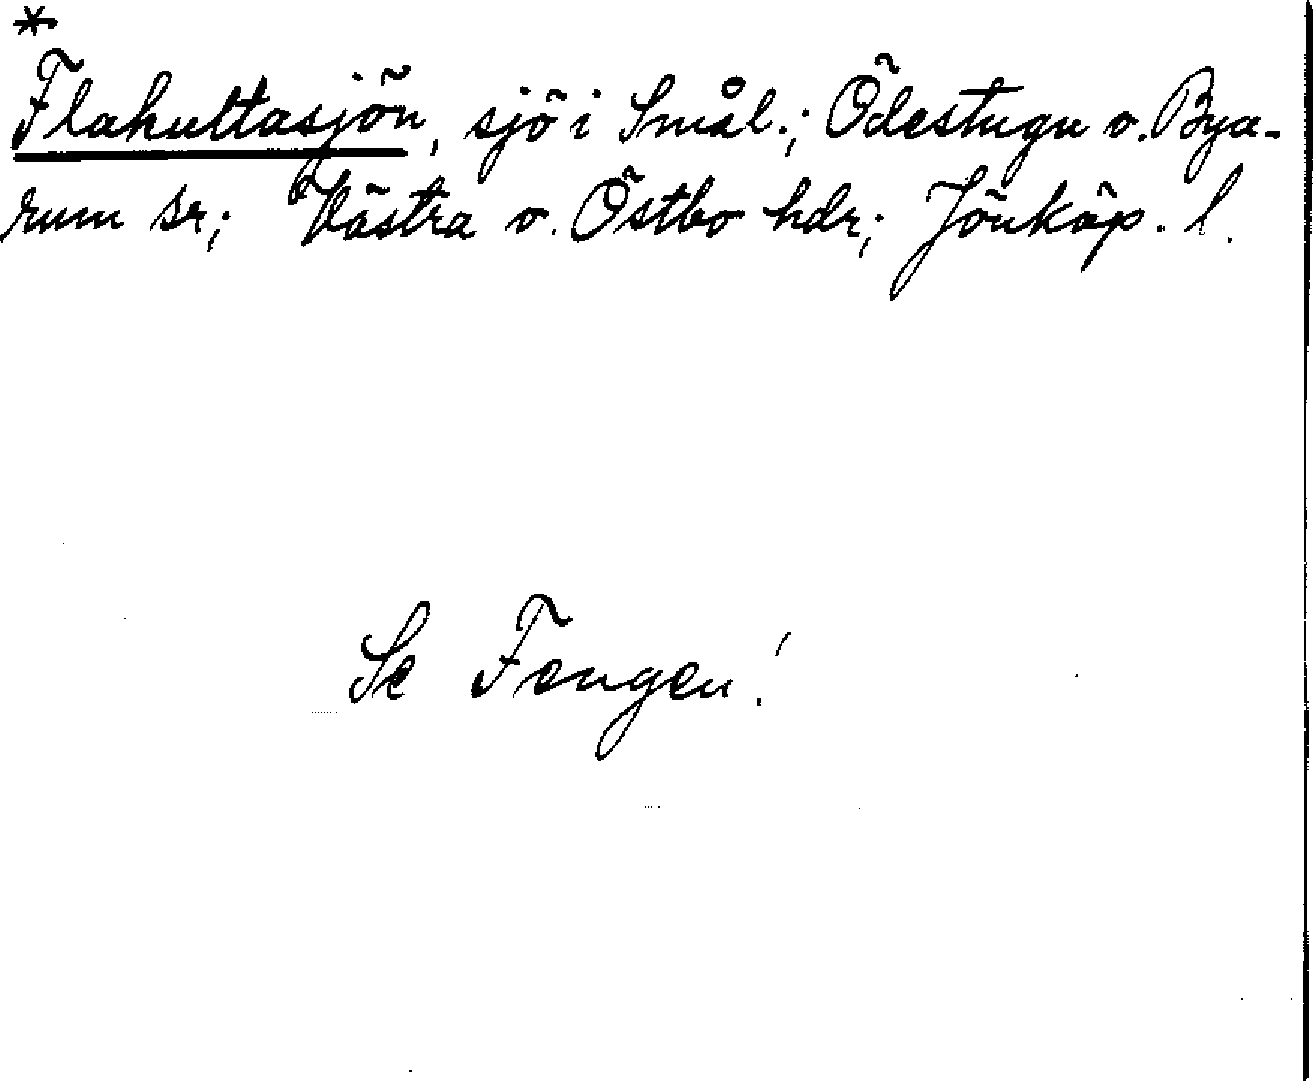 *
Flahultasjön, sjö i Smål.; Ödestugu o. Bya-
rum sr; Västra o. Östbo hdr; Jönköp. l.
Se Fengen!